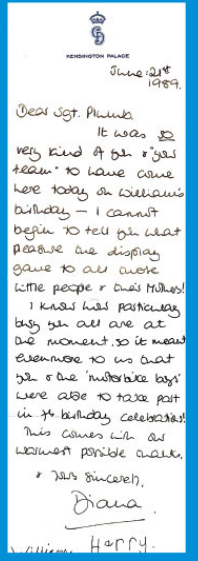 KENSINGTON PALACE
June: 21st
1989.
Dear Sgt. Plumb.
It was so
very kind of you & "your
team" to have come
here today on William's
birthday — I cannot
begin to tell you what
pleasure the display
gave to all those
little people & their Mothers!
I know how particularly
busy you all are at
the moment, so it meant
evenmore to us that
you & the 'motorbike boys'
were able to take part
in the birthday celebrations!
This comes with our
warmest possible thanks.
& Yours sincerely,
Diana
Harry.